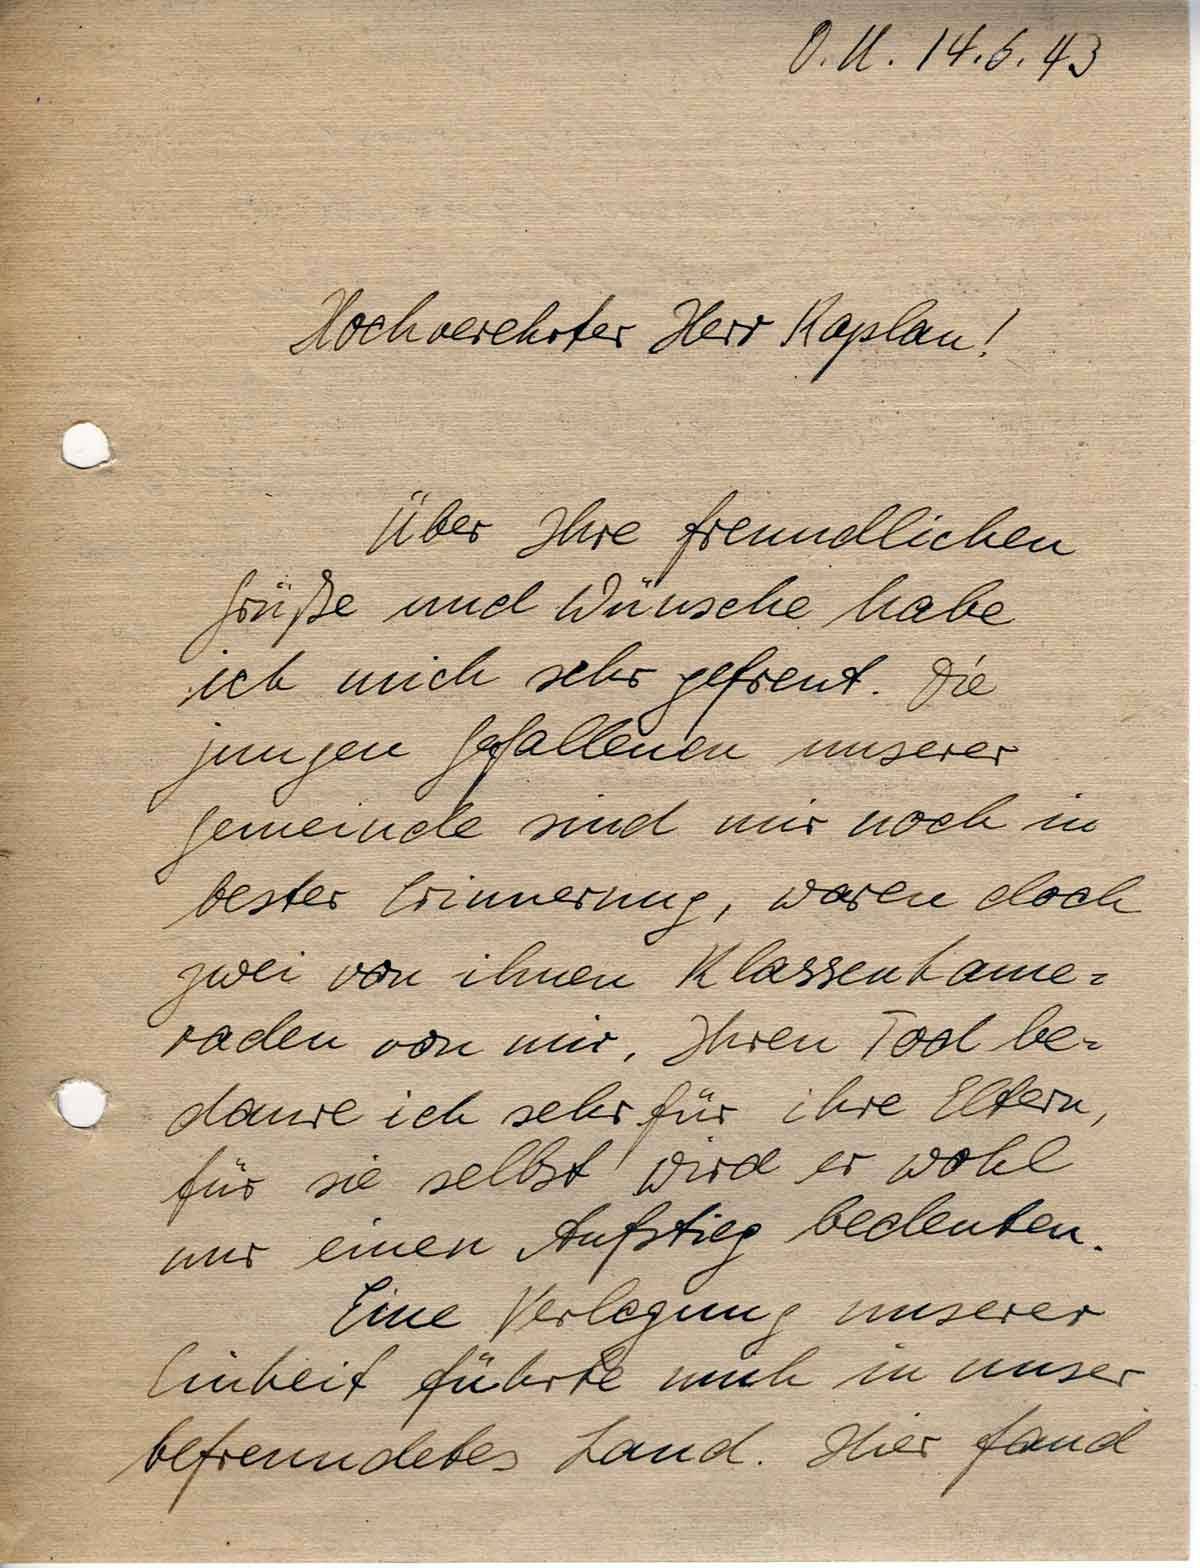 O.U. 14.6.43
Hochverehrter Herr Kaplan!
Über Ihre freundlichen
Grüße und Wünsche habe
ich mich sehr gefreut. Die
jungen Gefallenen unserer
Gemeinde sind mir noch in
bester Erinnerung, waren doch
zwei von ihnen Klassenkame=
raden von mir. Ihren Tod be=
daure ich sehr für ihre Eltern,
für sie selbst wird er wohl
nur einen Aufstieg bedeuten.
Eine Verlegung unserer
Einheit führte mich in unser
befreundetes Land. Hier fand